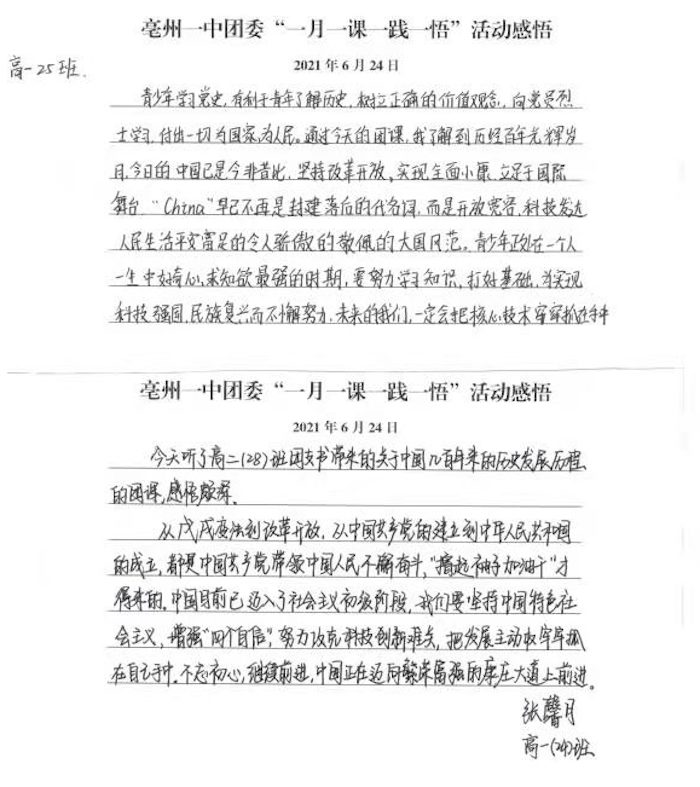 亳州一中团委“一月一课一践一悟”活动感悟
2021年6月24日
高一25班.
青少年学习党史,有利于青年了解历史,树立正确的价值观念,向党员烈
士学习,付出一切为国家,为人民。通过今天的团课,我了解到历经百年光辉岁
月,今日的中国已是今非昔比,坚持改革开放,实现全面小康,立足于国际
舞台,“China”早已不再是封建落后的代名词,而是开放宽容,科技发达
人民生活平安富足的令人骄傲的敬佩的大国风范。青少年正处在一个人
一生中好奇心,求知欲最强的时期,要努力学习知识,打好基础,为实现
科技强国,民族复兴而不懈努力,未来的我们,一定会把核心技术牢牢抓在手中
亳州一中团委“一月一课一践一悟”活动感悟
2021年6月24日
今天听了高二(28)班团支书带来的关于中国几百年来的历史发展历程
的团课,感悟颇深.
从戊戌变法到改革开放,从中国共产党的建立到中华人民共和国
的成立,都是中国共产党带领中国人民不懈奋斗,“撸起袖子加油干”才
得来的.中国目前已迈入了社会主义初级阶段,我们要坚持中国特色社
会主义,增强“四个自信”,努力攻克科技创新难关,把发展主动权牢牢抓
在自己手中.不忘初心,继续前进,中国正在迈向繁荣富强的康庄大道上前进。
张馨月
高一(24)班